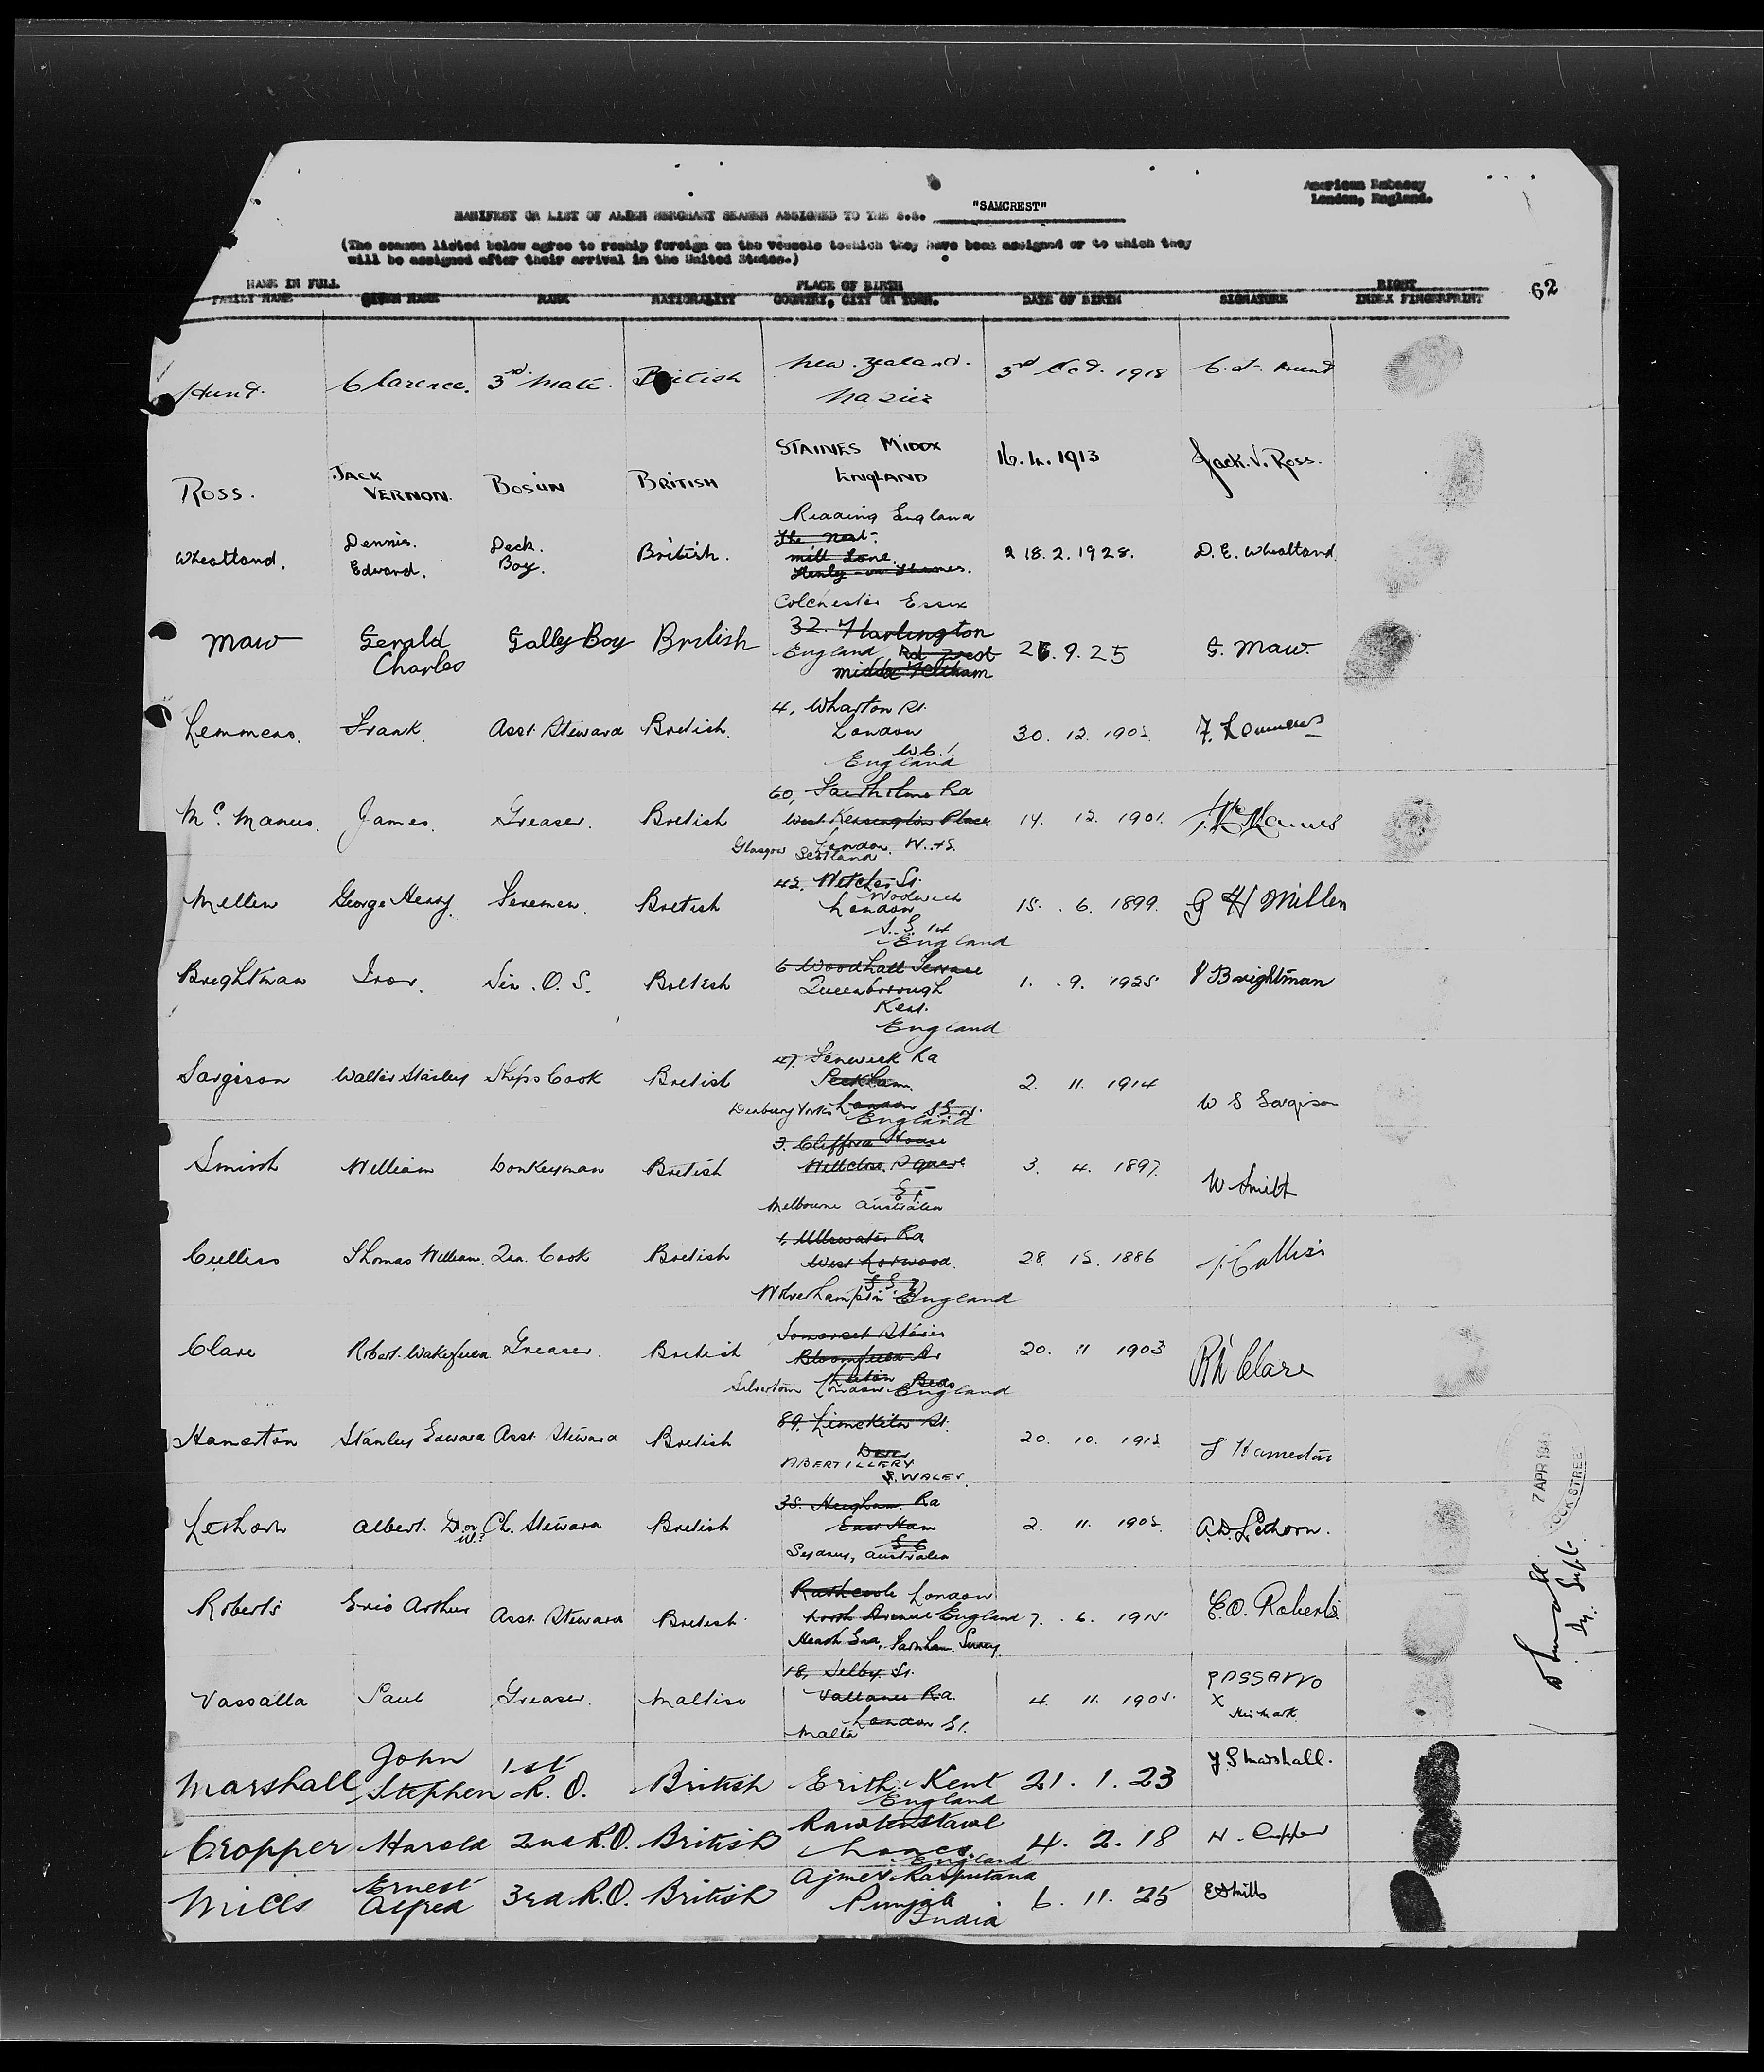 American Embassy
London, England.
"SAMCREST"
MANIFEST OR LIST OF ALIEN MERCHANT SEAMEN ASSIGNED TO THE S.S.
(The seamen listed below agree to reship foreign on the vessels towhich they have been assigned or to which they
will be assigned after their arrival in the United States.)
62
NAME IN FULL PLACE OF BIRTH RIGHT
FAMILY NAME GIVEN NAME RANK NATIONALITY COUNTRY, CITY OR TOWN. DATE OF BIRTH SIGNATURE INDEX FINGERPRINT
Hunt. Clarence. 3rd Mate. British New Zealand. 3rd Oct. 1918
Napier
STAINES MIDDX
ROSS. JACK VERNON. BOSUN BRITISH ENGLAND 16.4.1913 Jack. V. Ross.
Reading England
Wheatland. Dennis. Edward. Deck. Boy. British. The Nest. Mill Lane. Henly-on-Thames. 18.2.1928. D. E. Wheatland
Colchester Essex
Maw Gerald Charles Gally Boy British 32. Harlington
England Rd West 9.25 G. Maw.
Middx Feltham
4, Wharton St.
Lemmens. Frank. Asst. Steward British. London 30. 12. F. Lemmens
W.C.1
England
60, Rd
McManus. James. Greaser. British West Kensington Place 14. 12. 1901.
London. W.
Glasgow Scotland
42, St.
Millen George Henry. Firemen. British Woolwich
London 6. 1899. G H Millen
S.E. 14
England
6 Woodhall Terrace
Brightman Ivor. Sen. O. S. British Queenborough 1. 9. 1925 I Brightman
Kent.
England
47, Rd
Sargison Walter Stanley Ship's Cook British Peckham. 2. 11. 1914 W S Sargison
London S.E.
England
3. Clifford House
Smith William Donkeyman British Wellclose Square 3. 4. 1897. W Smith
E 1
Melbourne Australia
1, Ullswater Rd
Culliss Thomas William. 2nd. Cook British West Norwood. 28. 1886 T. Culliss
Wolverhampton England
Somerset
Clare Robert Wakefield Greaser. British Bloomfield 20. 11 1903 R W Clare
Luton Beds
Silvertown London England
89. Limekiln St.
Hamerton Stanley Edward Asst. Steward British 20. 10. S Hamerton
ABERTILLERY
S. WALES.
Rd
Lethorn Albert. Ch. Steward British East Ham 2. 11. A.D. Lethorn.
E 6
Sydney, Australia
London
Roberts Eric Arthur Asst. Steward British North Avenue England 7. 6. E.A. Roberts
Heath End, Farnham. Surrey.
18, Selby St.
Vassalla Paul Greaser. Maltese Vallance Rd. 4. 11. X
London E1. His Mark.
Malta
Marshall John Stephen 1st R. O. British Erith. Kent 21. 1. 23 J S Marshall.
England
Cropper Harold 2nd R.O. British Rawtenstall 4. 2. 18 H. Cropper
Lancs.
England
Mills Ernest Alfred 3rd R.O. British Ajmer Rajputana 6. 11. 25 E A Mills
Punjab
India
7 APR 194